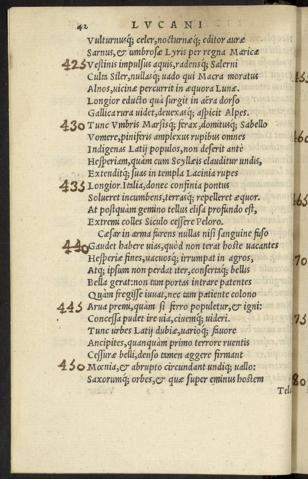 42 LVCANI
Vulturnusq; celer, nocturnæq; editor auræ
Sarnus, & umbrosæ Lyris per regna Maricæ
425 Vestinis impulsus aquis, radensq; Salerni
Culta Siler, nullasq; uado qui Macra moratus
Alnos, uicinæ percurrit in æquora Lunæ.
Longior educto quà surgit in aëra dorso
Gallica rura uidet, deuexasq; aspicit Alpes.
430 Tunc Vmbris Marsisq; ferax, domitusq; Sabello
Vomere, piniferis amplexus rupibus omnes
Indigenas Latij populos, non deserit antè
Hesperiam, quàm cum Scyllæis clauditur undis,
Extenditq; suas in templa Lacinia rupes
435 Longior Italia, donec confinia pontus
Solueret incumbens, terrasq; repelleret æquor.
At postquàm gemino tellus elisa profundo est,
Extremi colles Siculo cessere Peloro.
Cæsar in arma furens nullas nisi sanguine fuso
440 Gaudet habere uias, quòd non terat hoste uacantes
Hesperiæ fines, uacuosq; irrumpat in agros,
Atq; ipsum non perdat iter, consertaq; bellis
Bella gerat: non tam portas intrare patentes
Quàm fregisse iuuat, nec tam patiente colono
445 Arua premi, quàm si ferro populetur, & igni:
Concessa pudet ire uia, ciuemq; uideri.
Tunc urbes Latij dubiæ, uarioq; fauore
Ancipites, quanquàm primo terrore ruentis
Cessuræ belli, denso tamen aggere firmant
450 Mœnia, & abrupto circundant undiq; uallo:
Saxorumq; orbes, & quæ super eminus hostem
Tela